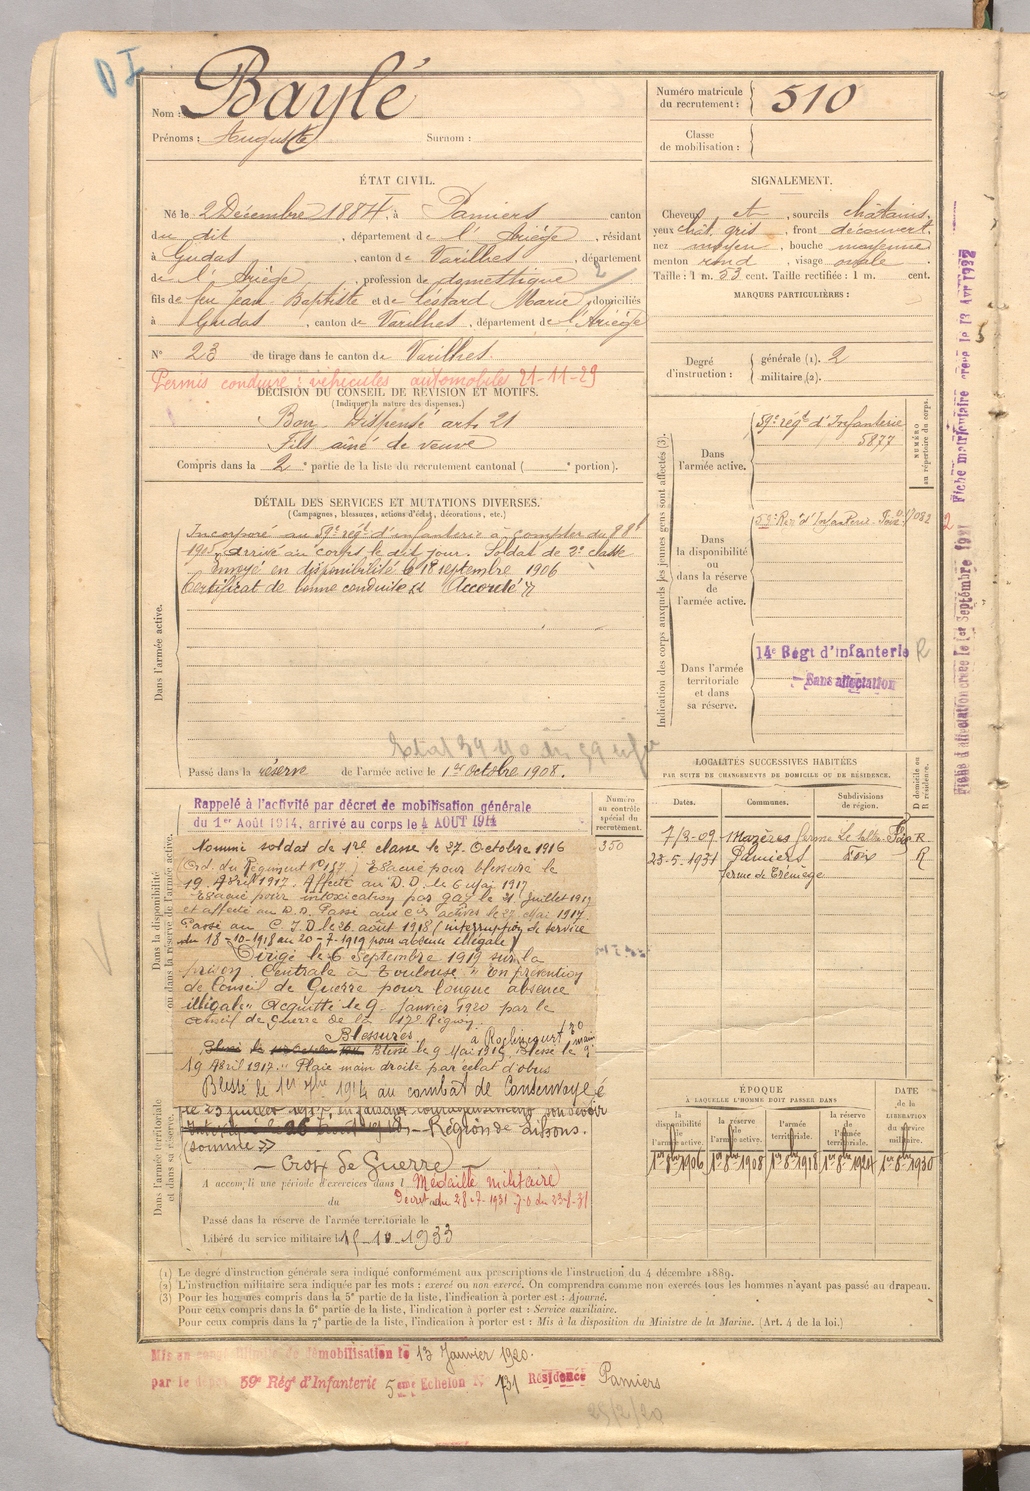 DI
Nom : Baylé
Prénoms : Auguste Surnom :
Numéro matricule
du recrutement : 510
Classe
de mobilisation :
ÉTAT CIVIL.
Né le 2 Décembre 1884, à Pamiers canton
du dit, département de l'Ariège, résidant
à Gudas, canton de Varilhes, département
de l'Ariège, profession de domestique
fils de feu Jean Baptiste et de Léotard Marie, domiciliés
à Gudas, canton de Varilhes, département de l'Ariège
N° 23 de tirage dans le canton de Varilhes.
Permis conduire : véhicules automobiles 21-11-29
DÉCISION DU CONSEIL DE RÉVISION ET MOTIFS.
(Indiquer la nature des dispenses.)
Bon. Dispensé art. 21
Fils aîné de veuve
Compris dans la 2e partie de la liste du recrutement cantonal ( e portion).
SIGNALEMENT.
Cheveux et, sourcils châtains,
yeux chât. gris, front découvert,
nez moyen, bouche moyenne
menton rond, visage ovale
Taille : 1 m. 53 cent. Taille rectifiée : 1 m. cent.
MARQUES PARTICULIÈRES :
Degré
d'instruction :
générale (1). 2
militaire (2).
DÉTAIL DES SERVICES ET MUTATIONS DIVERSES.
(Campagnes, blessures, actions d'éclat, décorations, etc.)
Dans l'armée active.
Incorporé au 59e régt d'infanterie à compter du 8
1905, arrivé au corps le dit jour. Soldat de 2e classe
Envoyé en disponibilité le 18 septembre 1906
Certificat de bonne conduite Accordé
Passé dans la réserve de l'armée active le 1er Octobre 1908.
Indication des corps auxquels les jeunes gens sont affectés (3).
NUMÉRO
au répertoire du corps.
Dans
l'armée active.
59e régt d'Infanterie
5877
Dans
la disponibilité
ou
dans la réserve
de
l'armée active.
59e Régt d'Infanterie Foix
Dans l'armée
territoriale
et dans
sa réserve.
14e Régt d'infanterie R
Sans affectation
Fiche d'affectation créée le 1er Septembre 1921 Fiche matriculaire créée le 13 Avr 1932
LOCALITÉS SUCCESSIVES HABITÉES
PAR SUITE DE CHANGEMENTS DE DOMICILE OU DE RÉSIDENCE.
Dates. Communes. Subdivisions
de région. D domicile ou
R résidence.
7/3-09 Mazères ferme Foix R
23-5-1931 Pamiers Foix R
ferme de
Dans la disponibilité
ou dans la réserve de l'armée active.
Rappelé à l'activité par décret de mobilisation générale
du 1er Août 1914, arrivé au corps le 4 AOUT 1914
Numéro
au contrôle
spécial du
recrutement.
350
Nommé soldat de 1re classe le 27 Octobre 1916
Ord. du Régiment N° 187 Évacué pour blessure le
19 Avril 1917. Affecté au D.D. le 6 Mai 1917
Évacué pour intoxication par gaz le 31 Juillet 1917
et affecté au D.D. Passé aux Cies actives le 27 Mai 1917.
Passé au C.I.D le 26 août 1918 (interruption de service
du 18-10-1918 au 20-7-1919 pour absence illégale)
Dirigé le 6 Septembre 1919 sur la
prison Centrale à Toulouse "En prévention
de Conseil de Guerre pour longue absence
illégale" Acquitté le 9 Janvier 1920 par le
Conseil de Guerre de la 17e Région.
Blessures
Blessé le 9 Mai 1915 à Roclincourt Blessé le
19 Avril 1917. "Plaie main droite par éclat d'obus
Blessé le 1er 1914 au combat de Consenvoye
le 23 juillet 1917, en faisant courageusement son devoir
Région de Lihons.
(Somme)
— Croix de Guerre —
Dans l'armée territoriale
et dans sa réserve.
A accompli une période d'exercices dans l Médaille militaire
du Décret du 28-7-1931 J.O du 23-8-31
Passé dans la réserve de l'armée territoriale le
Libéré du service militaire le 15-10-1933
ÉPOQUE
À LAQUELLE L'HOMME DOIT PASSER DANS
la
disponibilité
de
l'armée active.
la réserve
de
l'armée active.
l'armée
territoriale.
la réserve
de
l'armée
territoriale.
DATE
de la
LIBÉRATION
du service
militaire.
1er 8bre 1906 1er 8bre 1908 1er 8bre 1918 1er 8bre 1924 1er 8bre 1930
(1) Le degré d'instruction générale sera indiqué conformément aux prescriptions de l'instruction du 4 décembre 1889.
(2) L'instruction militaire sera indiquée par les mots : exercé ou non exercé. On comprendra comme non exercés tous les hommes n'ayant pas passé au drapeau.
(3) Pour les hommes compris dans la 5e partie de la liste, l'indication à porter est : Ajourné.
Pour ceux compris dans la 6e partie de la liste, l'indication à porter est : Service auxiliaire.
Pour ceux compris dans la 7e partie de la liste, l'indication à porter est : Mis à la disposition du Ministre de la Marine. (Art. 4 de la loi.)
Mis en congé illimité de démobilisation le 13 Janvier 1920.
par le dépôt 59e Régt d'Infanterie 5eme Echelon N° 731 Résidence Pamiers
25/2/20